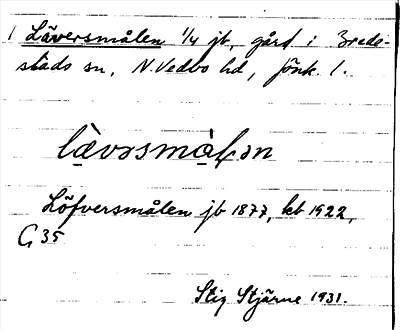 1 Läversmålen 1/4 jb, gård i Breda-
stads sn, N. Vedbo hd, Jönk. l.
lävərsmålən
Löfversmålen jb 1877, kb 1922,
G 35
Stig Stjärne 1931.